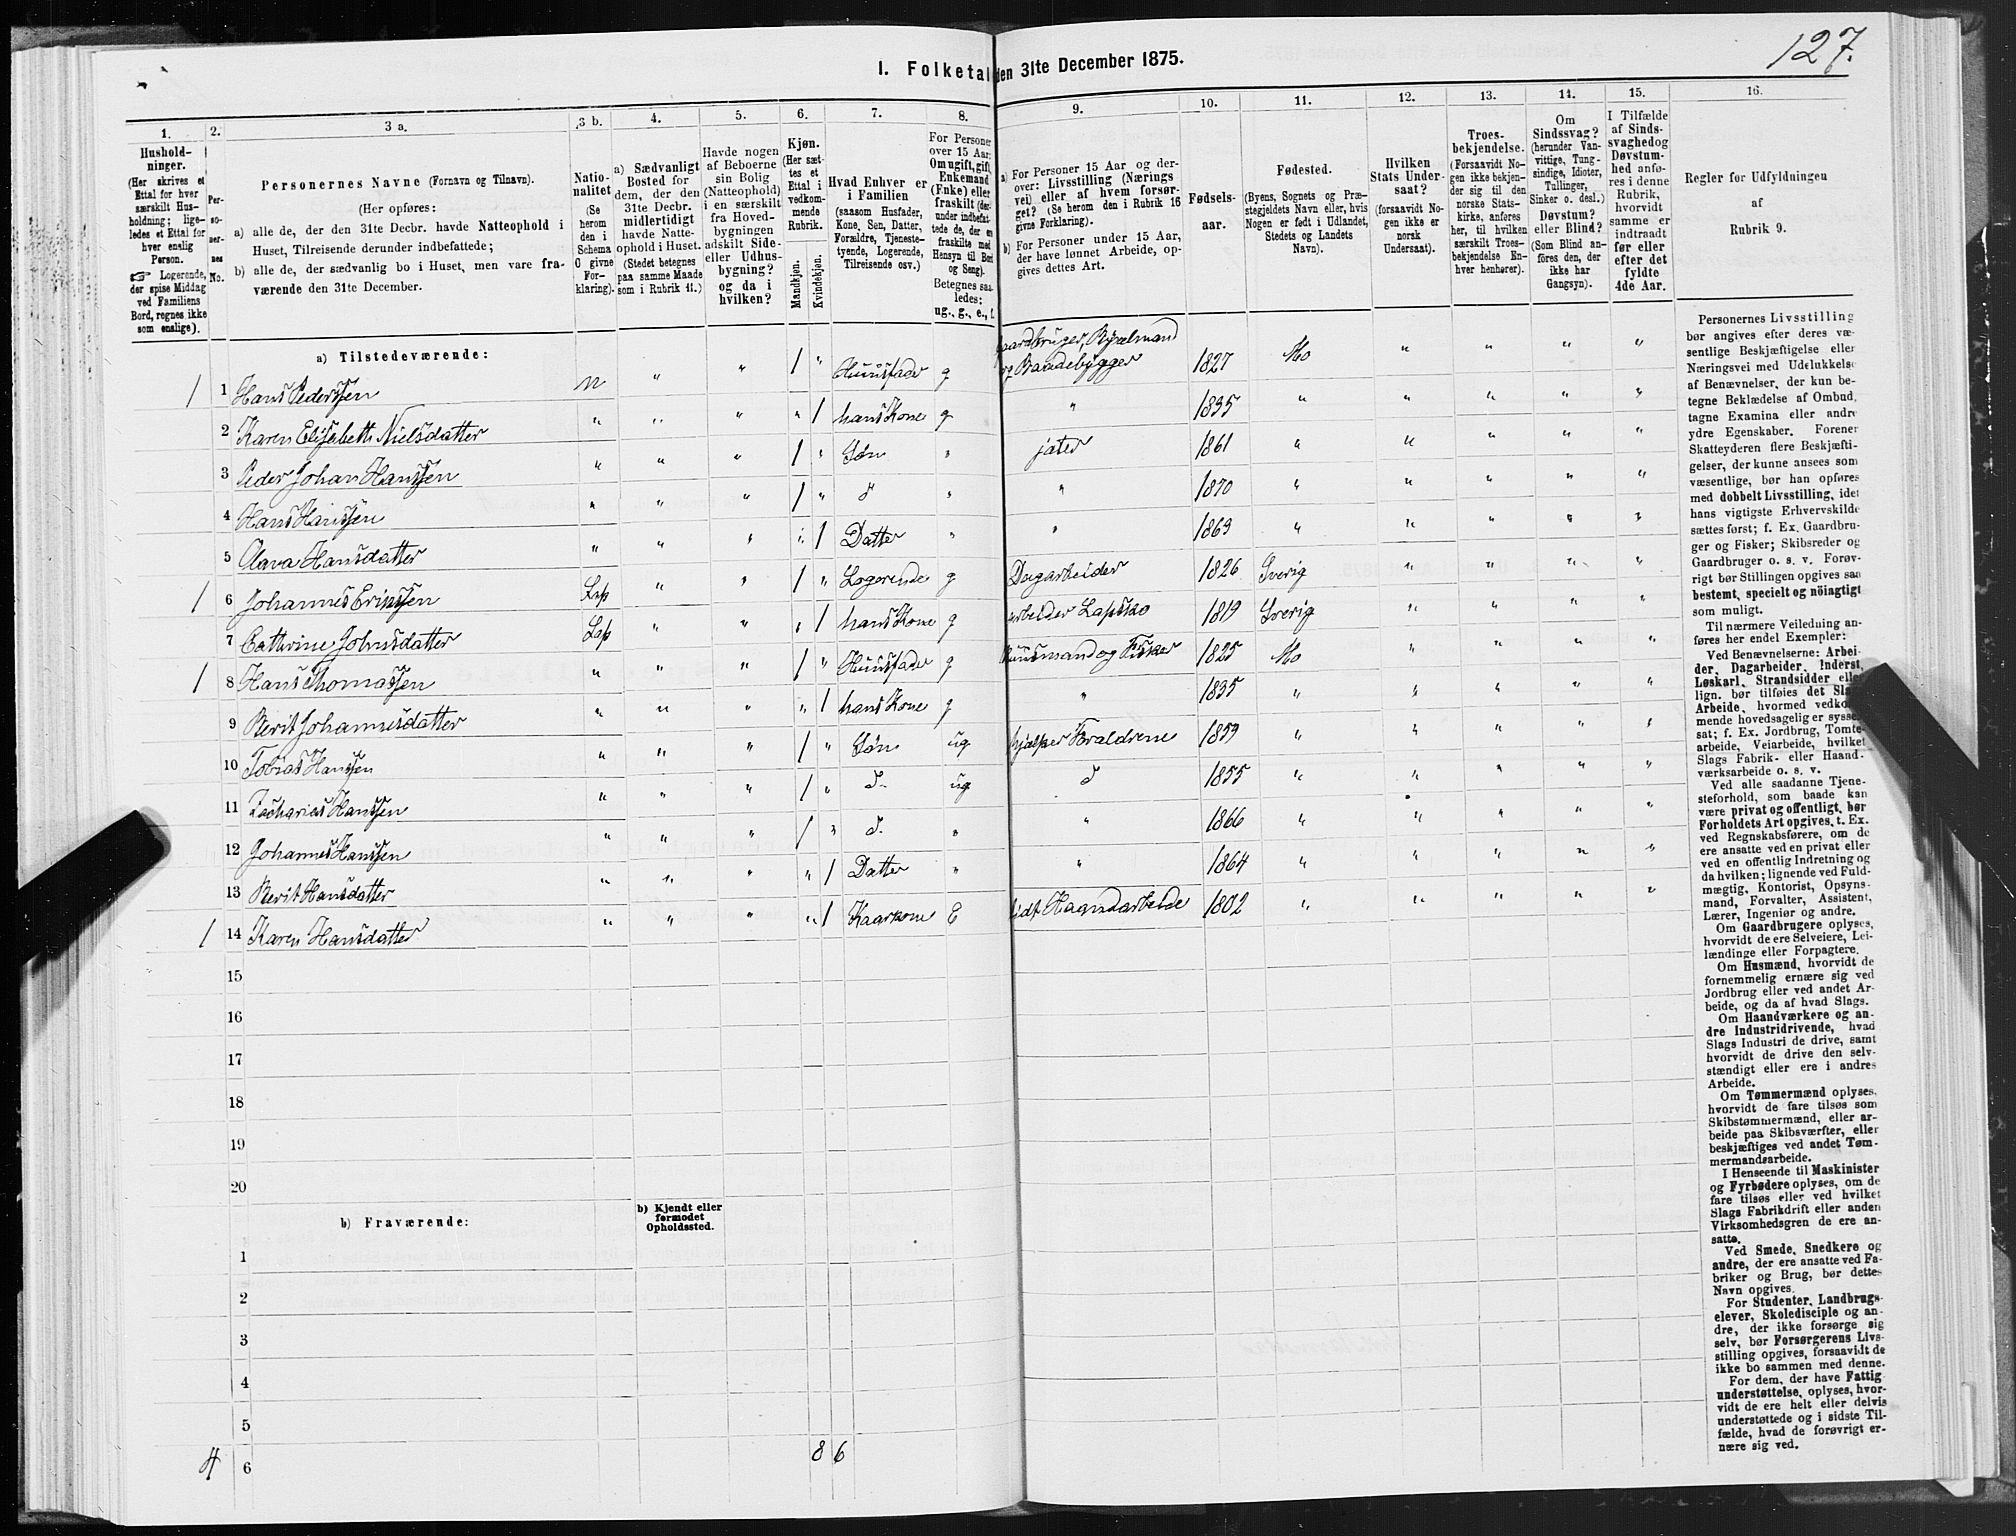 127.
I. Folketal den 31te December 1875.
1.
Hushold-
ninger.
(Her skrives et
Ettal for hver
særskilt Hus-
holdning; lige-
ledes et Ettal for
hver enslig
Person.
☞ Logerende,
der spise Middag
ved Familiens
Bord, regnes ikke
som enslige).
2.
Per-
so-
ner-
nes
No.
3 a.
Personernes Navne (Fornavn og Tilnavn).
(Her opføres:
a) alle de, der den 31te Decbr. havde Natteophold i
Huset, Tilreisende derunder indbefattede;
b) alle de, der sædvanlig bo i Huset, men vare fra-
værende den 31te December.
3 b.
Natio-
nalitet
(Se
herom
den i
Schema
O givne
For-
klaring).
4.
a) Sædvanligt
Bosted for
dem, der den
31te Decbr.
midlertidigt
havde Natte-
ophold i Huset.
(Stedet betegnes
paa samme Maade
som i Rubrik 11.)
5.
Havde nogen
af Beboerne
sin Bolig
(Natteophold)
i en særskilt
fra Hoved-
bygningen
adskilt Side-
eller Udhus-
bygning?
og da i
hvilken?
6.
Kjøn.
(Her sæt-
tes et
Ettal i
vedkom-
mende
Rubrik.
Mandkjøn.
Kvindekjøn.
7.
Hvad Enhver er
i Familien
(saasom Husfader,
Kone, Søn, Datter,
Forældre, Tjeneste-
tyende, Logerende,
Tilreisende osv.)
8.
For Personer
over 15 Aar;
Om ugift, gift,
Enkemand
(Enke) eller
fraskilt (der-
under indbefat-
tede de, der ere
fraskilte med
Hensyn til Bord
og Seng).
Betegnes saa-
ledes:
ug., g., e., f.
9.
a) For Personer 15 Aar og der-
over: Livsstilling (Nærings
vei) eller af hvem forsør-
get? (Se herom den i Rubrik 16
givne Forklaring).
b) For Personer under 15 Aar,
der have lønnet Arbeide, op-
gives dettes Art.
10.
Fødsels-
aar.
11.
Fødested.
(Byens, Sognets og Præ-
stegjeldets Navn eller, hvis
Nogen er født i Udlandet,
Stedets og Landets
Navn).
12.
Hvilken
Stats Under-
saat?
(forsaavidt No-
gen ikke er
norsk
Undersaat).
13.
Troes-
bekjendelse.
(Forsaavidt No-
gen ikke bekjen-
der sig til den
norske Stats-
kirke, anføres
her, til hvilken
særskilt Troes-
bekjendelse En-
hver henhører).
14.
Om
Sindssvag?
(herunder Van-
vittige, Tung-
sindige, Idioter,
Tullinger,
Sinker o. desl.)
Døvstum?
eller Blind?
(Som Blind an-
føres den, der
ikke har
Gangsyn).
15.
I Tilfælde
af Sinds-
svaghed og
Døvstum-
hed anfø-
res i denne
Rubrik,
hvorvidt
samme er
indtraadt
før eller
efter det
fyldte
4de Aar.
16.
Regler for Udfyldningen
af
Rubrik 9.
a) Tilstedeværende:
1 1 Hans Pederssen n " " 1 " Huusfader g Gaardbruger, Bygselmand og Baadebygger 1827 Mo " " " "
2 Karen Elisebeth Nielsdatter " " " " 1 hans Kone g " 1835 " " " " "
3 Peder Johan Hanssen " " " 1 " Søn " jæter 1861 " " " " "
4 Hans Hanssen " " " 1 " d " " 1870 " " " " "
5 Olava Hansdatter " " " " 1 Datter " " 1869 " " " " "
1 6 Johannes Erikssen Lap " " 1 " Logerende g Dagarbeider 1826 Sverig " " " "
7 Cathrine Johnsdatter Lap " " " 1 hans Kone g arbeider Lapsko 1819 Sverig " " " "
1 8 Hans Thomassen " " " 1 " Huusfader g Huusmand og Fisker 1825 Mo " " " "
9 Berit Johannesdatter " " " " 1 hans Kone g " 1835 " " " " "
10 Tobias Hanssen " " " 1 " Søn ug hjælper Forældrene 1859 " " " " "
11 Zacharias Hanssen " " " 1 " d. ug d 1855 " " " " "
12 Johannes Hanssen " " " 1 " d. " " 1866 " " " " "
13 Berit Hansdatter " " " " 1 Datter " " 1864 " " " " "
1 14 Karen Hansdatter " " " " 1 Kaarkone E lidt Haandarbeide 1802 " " " " "
15
16
17
18
19
20
b) Fraværende:
b) Kjendt eller
formodet
Opholdssted.
1
2
3
4
5
4 6 8 6
Personernes Livsstilling
bør angives efter deres væ-
sentlige Beskjæftigelse eller
Næringsvei med Udelukkelse
af Benævnelser, der kun be-
tegne Beklædelse af Ombud,
tagne Examina eller andre
ydre Egenskaber. Forener
Skatteyderen flere Beskjæfti-
gelser, der kunne ansees som
væsentlige, bør han opføres
med dobbelt Livsstilling, idet
hans vigtigste Erhvervskilde
sættes først; f. Ex. Gaardbru-
ger og Fisker; Skibsreder og
Gaardbruger o. s. v. Forøv-
rigt bør Stillingen opgives saa
bestemt, specielt og nöiagtigt
som muligt.
Til nærmere Veiledning an-
føres her endel Exempler:
Ved Benævnelserne: Arbei-
der, Dagarbeider, Inderst,
Løskarl, Strandsidder eller
lign. bør tilføies det Slags
Arbeide, hvormed vedkom-
mende hovedsagelig er syssel-
sat; f. Ex. Jordbrug, Tomte-
arbeide, Veiarbeide, hvilket
Slags Fabrik- eller Haand-
værksarbeide o. s. v.
Ved alle saadanne Tjene-
steforhold, som baade kan
være privat og offentligt, bør
Forholdets Art opgives, t. Ex.
ved Regnskabsførere, om de
ere ansatte ved en privat eller
ved en offentlig Indretning og
da hvilken; lignende ved Fuld-
mægtig, Kontorist, Opsyns-
mand, Forvalter, Assistent,
Lærer, Ingeniør og andre.
Om Gaardbrugere oplyses,
hvorvidt de ere Selveiere, Lei-
lændinge eller Forpagtere.
Om Husmænd, hvorvidt de
fornemmelig ernære sig ved
Jordbrug eller ved andet Ar-
beide, og da af hvad Slags.
Om Haandværkere og an-
dre Industridrivende, hvad
Slags Industri de drive, samt
hvorvidt de drive den selv-
stændigt eller ere i andres
Arbeide.
Om Tømmermænd oplyses,
hvorvidt de fare tilsøs som
Skibstømmermænd, eller ar-
beide paa Skibsværfter, eller
beskjæftiges ved andet Tøm-
mermandsarbeide.
I Henseende til Maskinister
og Fyrbødere oplyses, om de
fare tilsøs eller ved hvilket
Slags Fabrikdrift eller anden
Virksomhedsgren de ere an-
satte.
Ved Smede, Snedkere og
andre, der ere ansatte ved Fa-
briker og Brug, bør dettes
Navn opgives.
For Studenter, Landbrugs-
elever, Skoledisciple og an-
dre, der ikke forsørge sig
selv, bør Forsørgerens Livs-
stilling opgives, forsaavidt de
ikke bo sammen med denne.
For dem, der have Fattig-
understøttelse, oplyses, hvor-
vidt de ere helt eller delvis
understøttede og i sidste Til-
fælde, hvad de forøvrigt er-
nære sig ved.